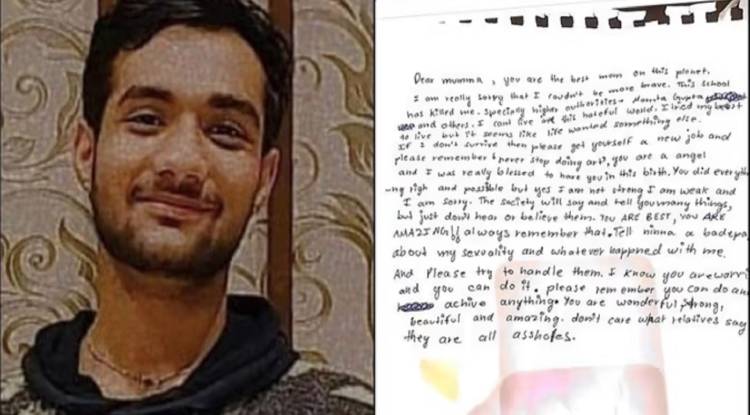 Dear mumma, you are the best mom on this planet.
I am really sorry that I couldn't be more brave. This school
has killed me. Specially higher authorities. Mamta Gupta
and others. I can't live in this hateful world. I tried my best
to live but it seems like life wanted something else.
If I don't survive then please get yourself a new job and
please remember & never stop doing art, you are a angel
and I was really blessed to have you in this birth. You did everyth
-ng righ and possible but yes I am not strong I am weak and
I am sorry. The society will say and tell you many things,
but just don't hear or believe them. YOU ARE BEST, YOU ARE
AMAZING!! always remember that. Tell
about my sexuality and whatever happned with me.
And Please try to handle them. I know you are worri
and you can do it. please remember you can do an
achive anything. You are wonderful, strong,
beautiful and amazing. don't care what relatives say
they are all assholes.